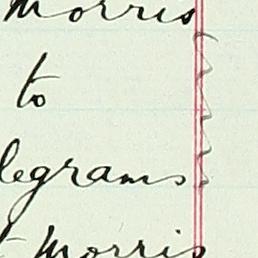 Morris
to
legrams
Morris